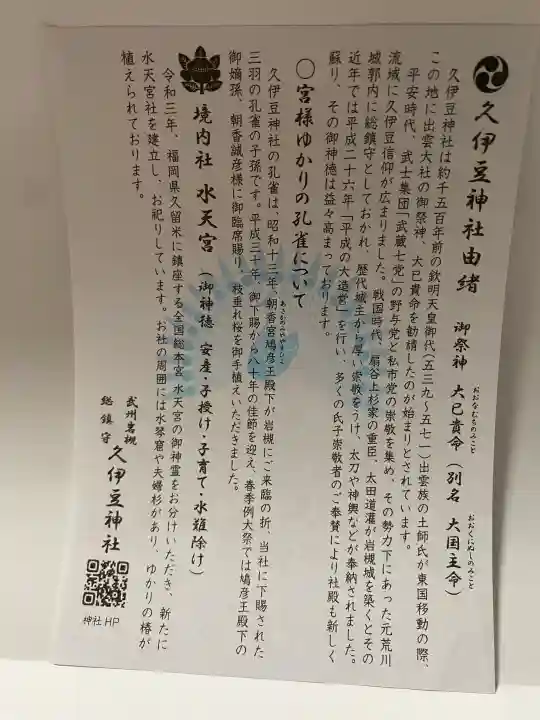 久伊豆神社由緒　御祭神　大己貴命（別名　大国主命）
おおなむちのみこと
おおくにぬしのみこと
久伊豆神社は約千五百年前の欽明天皇御代（五三九～五七一）出雲族の土師氏が東国移動の際、
この地に出雲大社の御祭神、大己貴命を勧請したのが始まりとされています。
平安時代、武士集団「武蔵七党」の野与党と私市党の崇敬を集め、その勢力下にあった元荒川
流域に久伊豆信仰が広まりました。戦国時代、扇谷上杉家の重臣、太田道灌が岩槻城を築くとその
城郭内に総鎮守としておかれ、歴代城主から厚い崇敬をうけ、太刀や神輿などが奉納されました。
近年では平成二十六年「平成の大造営」を行い、多くの氏子崇敬者のご奉賛により社殿も新しく
蘇り、その御神徳は益々高まっております。
〇宮様ゆかりの孔雀について
あさかのみややすひこ
久伊豆神社の孔雀は、昭和十三年、朝香宮鳩彦王殿下が岩槻にご来臨の折、当社に下賜された
三羽の孔雀の子孫です。平成三十年、御下賜から八十年の佳節を迎え、春季例大祭では鳩彦王殿下の
御嫡孫、朝香誠彦様に御臨席賜り、枝垂れ桜を御手植えいただきました。
境内社　水天宮　（御神徳　安産・子授け・子育て・水難除け）
令和三年、福岡県久留米に鎮座する全国総本宮 水天宮の御神霊をお分けいただき、新たに
水天宮社を建立し、お祀りしています。お社の周囲には水琴窟や夫婦杉があり、ゆかりの椿が
植えられております。
武州岩槻
総鎮守
久伊豆神社
神社HP